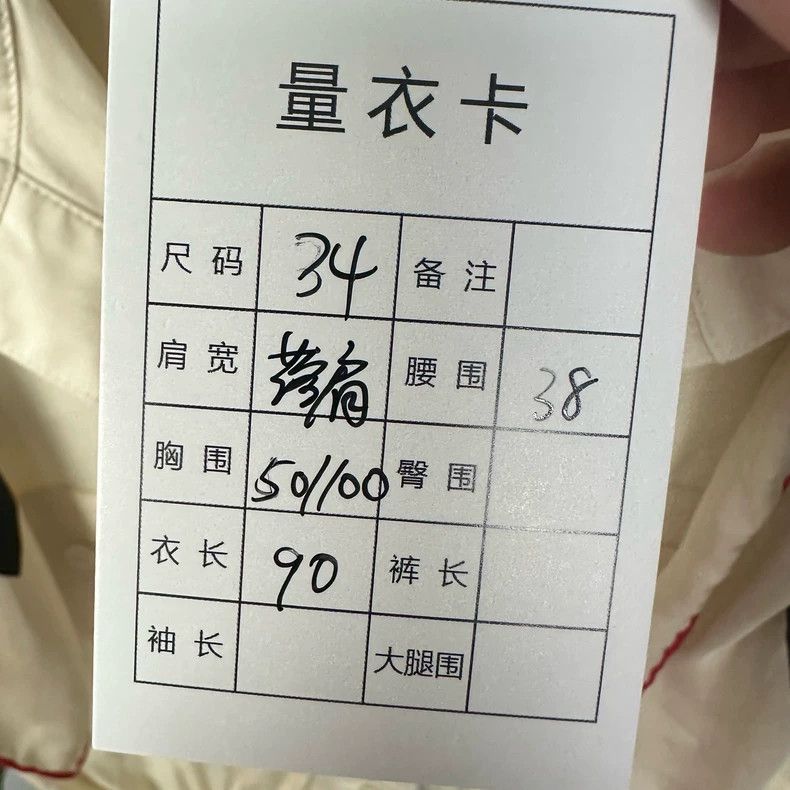 量衣卡
尺码 34 备注
肩宽 落肩 腰围 38
胸围 50/100 臀围
衣长 90 裤长
袖长 大腿围